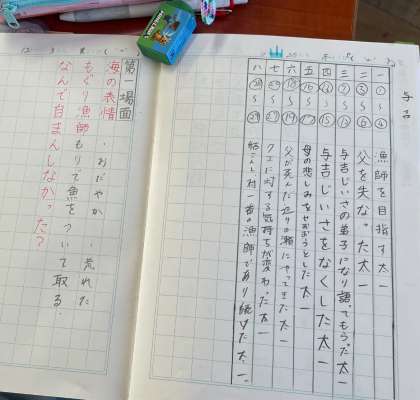 与吉
一 ①〜④ 漁師を目指す太一
二 〜 父を失なった太一
三 〜 与吉じいさの弟子になり てもらった太一
四 〜 与吉じいさをなくした太一
五 〜 母の悲しみをせおうとした太一
六 〜 父が死んだ辺りの瀬にやってきた太一
七 〜 クエに対する気持ちが変わった太一
八 〜㉙ 結こんし村一番の漁師であり続けた太一。
第一場面
海の表情 ・おだやか ・荒れた
もぐり漁師 もりで魚をついて取る
なんで自まんしなかった?